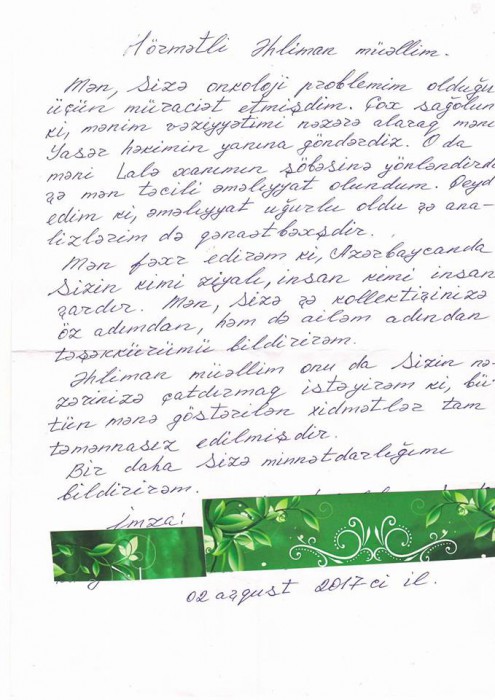 Hörmətli Əhliman müəllim.
Mən, Sizə onkoloji problemim olduğu
üçün müraciət etmişdim. Çox sağolun
ki, mənim vəziyyətimi nəzərə alaraq məni
Yasər həkimin yanına göndərdiz. O da
məni Lalə xanımın şöbəsinə yönləndirdi
və mən təcili əməliyyat olundum. Qeyd
edim ki, əməliyyat uğurlu oldu və ana-
lizlərim də qənaətbəxşdir.
Mən fəxr edirəm ki, Azərbaycanda
Sizin kimi ziyalı, insan kimi insan
vardır. Mən, Sizə və kollektivinizə
öz adımdan, həm də ailəm adından
təşəkkürümü bildirirəm.
Əhliman müəllim onu da Sizin nə-
zərinizə çatdırmaq istəyirəm ki, bü-
tün mənə göstərilən xidmətlər tam
təmənnasız edilmişdir.
Bir daha Sizə minnətdarlığımı
bildirirəm.
İmza:
02 avqust 2017 ci il.